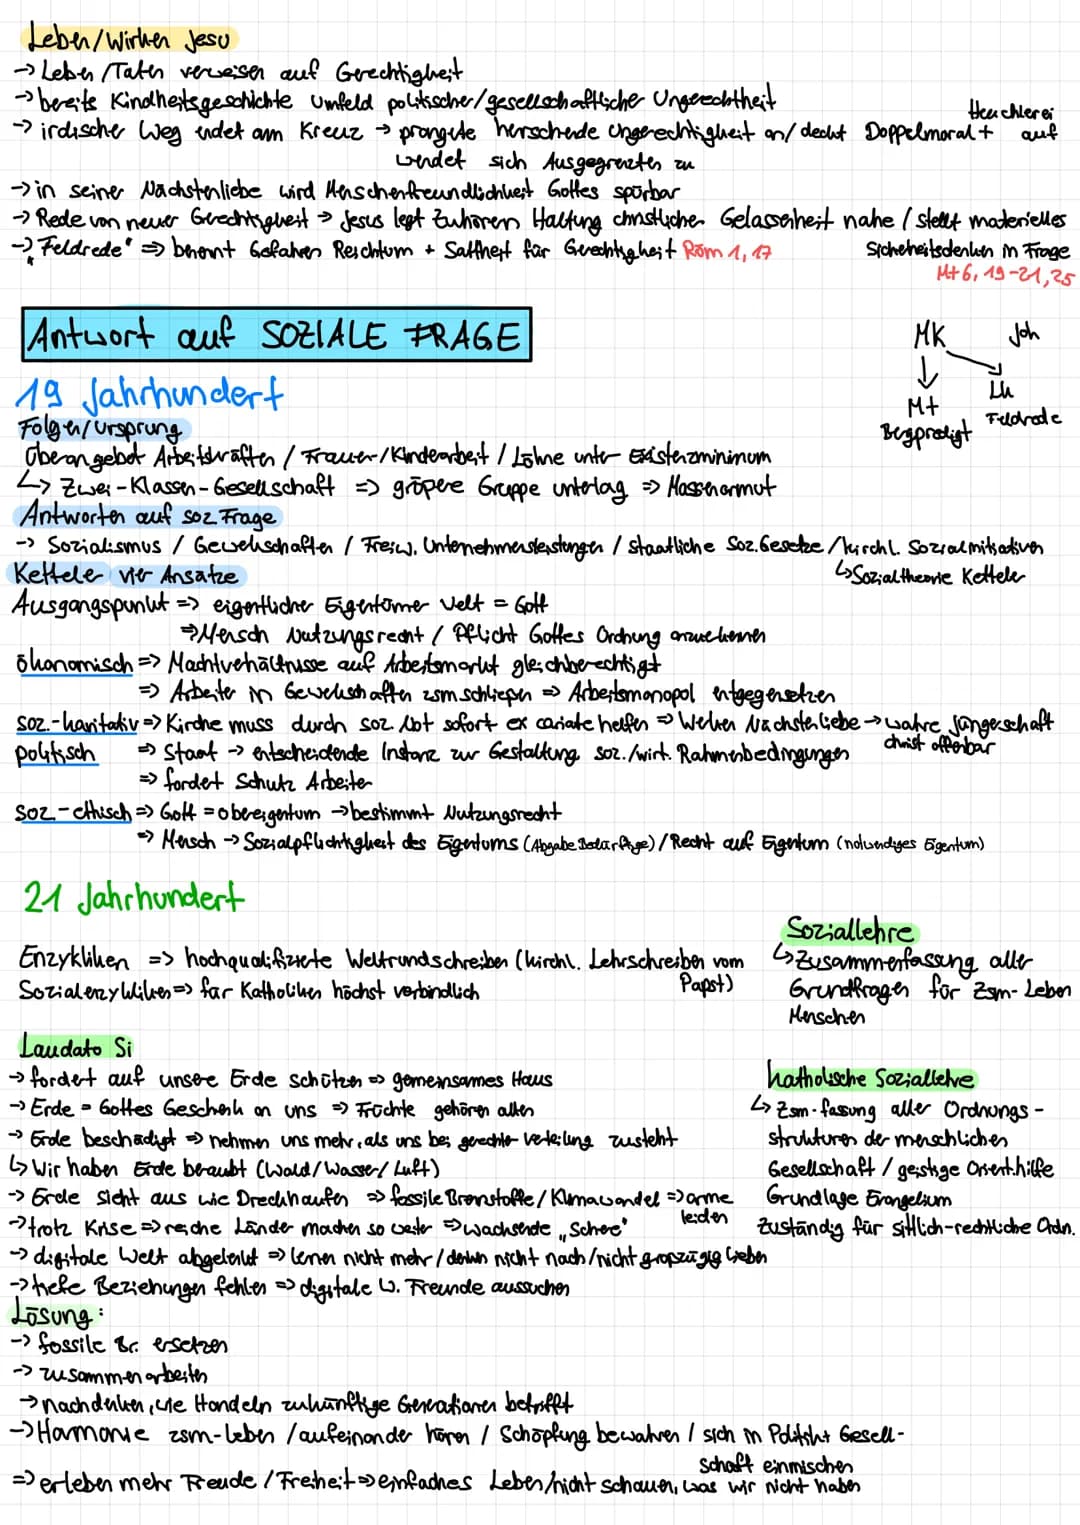 Leben/Wirken Jesu
-> Leben/Taten verweisen auf Gerechtigkeit
-> bereits Kindheitsgeschichte Umfeld politischer/gesellschaftlicher Ungerechtheit
-> irdischer Weg endet am Kreuz -> prangte herrschende Ungerechtigkeit an/deckt Doppelmoral + Heuchlerei auf
wendet sich Ausgegrenzten zu
-> in seiner Nächstenliebe wird Menschenfreundlichkeit Gottes spürbar
-> Rede von neuer Gerechtigkeit => Jesus legt Zuhörern Haltung christlicher Gelassenheit nahe / stellt materielles
Sicherheitsdenken in Frage
-> "Feldrede" => benennt Gefahren Reichtum + Sattheit für Gerechtigkeit Röm 1, 17
Mt 6, 19-21, 25
Antwort auf SOZIALE FRAGE
MK Joh
Mt Lk
Bergpredigt Feldrede
19 Jahrhundert
Folgen/Ursprung
Überangebot Arbeitskräften / Frauen-/Kinderarbeit / Löhne unter Existenzminimum
↳ Zwei-Klassen-Gesellschaft => größere Gruppe unterlag => Massenarmut
Antworten auf soz. Frage
-> Sozialismus / Gewerkschaften / Freiw. Unternehmensleistungen / staatliche Soz. Gesetze / kirchl. Sozialinitiativen
↳ Sozialtheorie Ketteler
Ketteler vier Ansätze
Ausgangspunkt => eigentlicher Eigentümer Welt = Gott
=> Mensch Nutzungsrecht / Pflicht Gottes Ordnung anzuerkennen
ökonomisch => Machtverhältnisse auf Arbeitsmarkt gleichberechtigt
=> Arbeiter in Gewerkschaften zsm.schließen => Arbeitsmonopol entgegensetzen
soz.-karitativ => Kirche muss durch soz. Not sofort ex cariate helfen => Werken Nächstenliebe -> wahre Jüngerschaft
christ offenbar
politisch => Staat -> entscheidende Instanz zur Gestaltung soz./wirt. Rahmenbedingungen
=> fordert Schutz Arbeiter
soz.-ethisch => Gott = obereigentum -> bestimmt Nutzungsrecht
=> Mensch -> Sozialpflichtigkeit des Eigentums (Abgabe Bedürftige) / Recht auf Eigentum (notwendiges Eigentum)
21 Jahrhundert
Enzykliken => hochqualifizierte Weltrundschreiben (kirchl. Lehrschreiben vom
Papst)
Sozialenzykliken => für Katholiken höchst verbindlich
Soziallehre
↳ Zusammenfassung aller
Grundfragen für Zsm-Leben
Menschen
Laudato Si
-> fordert auf unsere Erde schützen => gemeinsames Haus
-> Erde = Gottes Geschenk an uns => Früchte gehören allen
-> Erde beschädigt => nehmen uns mehr, als uns bei gerechter Verteilung zusteht
↳ Wir haben Erde beraubt (Wald/Wasser/Luft)
-> Erde sieht aus wie Dreckhaufen => fossile Brennstoffe/Klimawandel => arme
leiden
-> trotz Krise => reiche Länder machen so weiter => wachsende "Schere"
-> digitale Welt abgelenkt => lernen nicht mehr / denken nicht nach / nicht großzügig lieben
-> tiefe Beziehungen fehlen => digitale W. Freunde aussuchen
katholische Soziallehre
↳ Zsm-fassung aller Ordnungs-
strukturen der menschlichen
Gesellschaft / geistige Orient.hilfe
Grundlage Evangelium
zuständig für sittlich-rechtliche Ordn.
Lösung:
-> fossile Br. ersetzen
-> zusammenarbeiten
-> nachdenken, wie Handeln zukünftige Generationen betrifft
-> Harmonie zsm-leben / aufeinander hören / Schöpfung bewahren / sich in Politik+ Gesell-
schaft einmischen
=> erleben mehr Freude / Freiheit => einfaches Leben/nicht schauen, was wir nicht haben